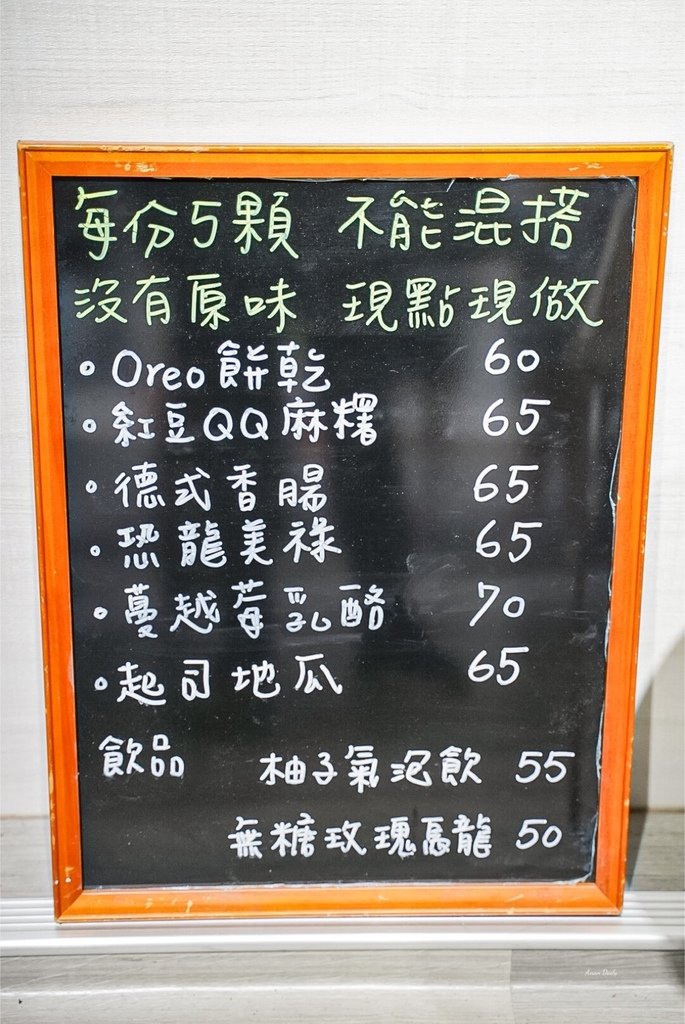 每份5顆 不能混搭
沒有原味 現點現做
。Oreo餅乾 60
。紅豆QQ麻糬 65
。德式香腸 65
。恐龍美祿 65
。蔓越莓乳酪 70
。起司地瓜 65
飲品 柚子氣泡飲 55
無糖玫瑰烏龍 50
Anan Daily